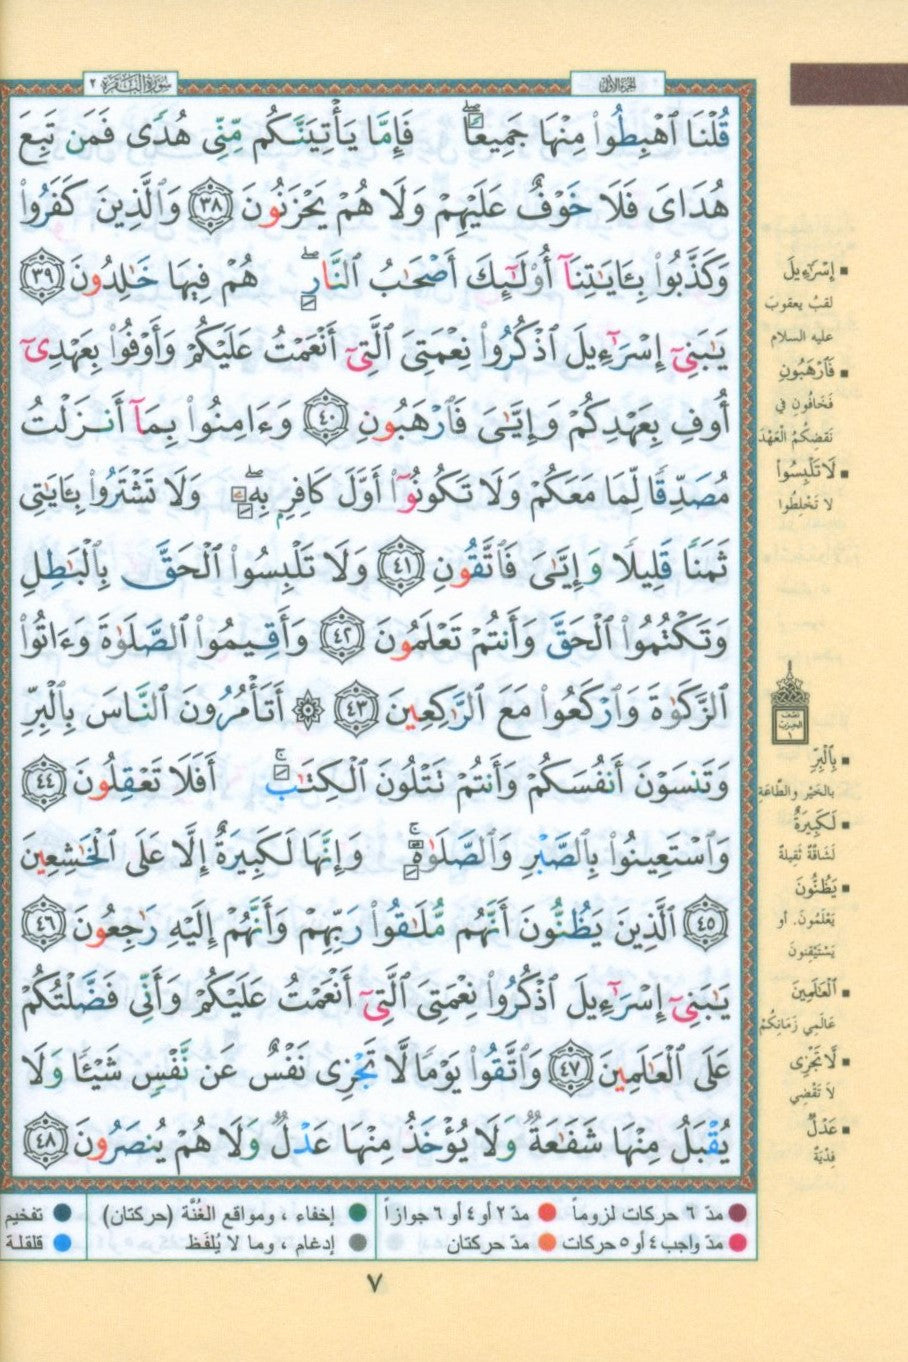 سُورَةُ البَقَرَة ٢
الجزء الأول
قُلْنَا ٱهْبِطُوا۟ مِنْهَا جَمِيعًا ۖ فَإِمَّا يَأْتِيَنَّكُم مِّنِّى هُدًى فَمَن تَبِعَ
هُدَاىَ فَلَا خَوْفٌ عَلَيْهِمْ وَلَا هُمْ يَحْزَنُونَ ٣٨ وَٱلَّذِينَ كَفَرُوا۟
وَكَذَّبُوا۟ بِـَٔايَـٰتِنَآ أُو۟لَـٰٓئِكَ أَصْحَـٰبُ ٱلنَّارِ ۖ هُمْ فِيهَا خَـٰلِدُونَ ٣٩
يَـٰبَنِىٓ إِسْرَٰٓءِيلَ ٱذْكُرُوا۟ نِعْمَتِىَ ٱلَّتِىٓ أَنْعَمْتُ عَلَيْكُمْ وَأَوْفُوا۟ بِعَهْدِىٓ
أُوفِ بِعَهْدِكُمْ وَإِيَّـٰىَ فَٱرْهَبُونِ ٤٠ وَءَامِنُوا۟ بِمَآ أَنزَلْتُ
مُصَدِّقًا لِّمَا مَعَكُمْ وَلَا تَكُونُوٓا۟ أَوَّلَ كَافِرٍۭ بِهِۦ ۖ وَلَا تَشْتَرُوا۟ بِـَٔايَـٰتِى
ثَمَنًا قَلِيلًا وَإِيَّـٰىَ فَٱتَّقُونِ ٤١ وَلَا تَلْبِسُوا۟ ٱلْحَقَّ بِٱلْبَـٰطِلِ
وَتَكْتُمُوا۟ ٱلْحَقَّ وَأَنتُمْ تَعْلَمُونَ ٤٢ وَأَقِيمُوا۟ ٱلصَّلَوٰةَ وَءَاتُوا۟
ٱلزَّكَوٰةَ وَٱرْكَعُوا۟ مَعَ ٱلرَّٰكِعِينَ ٤٣ ۞ أَتَأْمُرُونَ ٱلنَّاسَ بِٱلْبِرِّ
وَتَنسَوْنَ أَنفُسَكُمْ وَأَنتُمْ تَتْلُونَ ٱلْكِتَـٰبَ ۚ أَفَلَا تَعْقِلُونَ ٤٤
وَٱسْتَعِينُوا۟ بِٱلصَّبْرِ وَٱلصَّلَوٰةِ ۚ وَإِنَّهَا لَكَبِيرَةٌ إِلَّا عَلَى ٱلْخَـٰشِعِينَ
٤٥ ٱلَّذِينَ يَظُنُّونَ أَنَّهُم مُّلَـٰقُوا۟ رَبِّهِمْ وَأَنَّهُمْ إِلَيْهِ رَٰجِعُونَ ٤٦
يَـٰبَنِىٓ إِسْرَٰٓءِيلَ ٱذْكُرُوا۟ نِعْمَتِىَ ٱلَّتِىٓ أَنْعَمْتُ عَلَيْكُمْ وَأَنِّى فَضَّلْتُكُمْ
عَلَى ٱلْعَـٰلَمِينَ ٤٧ وَٱتَّقُوا۟ يَوْمًا لَّا تَجْزِى نَفْسٌ عَن نَّفْسٍ شَيْـًٔا وَلَا
يُقْبَلُ مِنْهَا شَفَـٰعَةٌ وَلَا يُؤْخَذُ مِنْهَا عَدْلٌ وَلَا هُمْ يُنصَرُونَ ٤٨
إِسْرَٰٓءِيلَ
لقبُ يعقوبَ
عليه السلام
فَٱرْهَبُونِ
فَخَافُونِ فِي
نَقْضِكُمُ الْعَهْدَ
لَا تَلْبِسُوا۟
لا تَخْلِطُوا
نصف
الحزب
١
بِٱلْبِرِّ
بالخَيْرِ والطّاعَةِ
لَكَبِيرَةٌ
لَشَاقَّةٌ ثَقِيلَةٌ
يَظُنُّونَ
يَعْلَمُونَ. أو
يَسْتَيْقِنونَ
ٱلْعَالَمِينَ
عَالَمِي زَمَانِكُمْ
لَّا تَجْزِى
لاَ تَقْضِي
عَدْلٌ
فِدْيَةٌ
مدّ ٦ حركات لزوماً مدّ ٢ أو ٤ أو ٦ جوازاً إخفاء ، ومواقع الغُنَّة (حركتان) تفخيم
مدّ واجب ٤ أو ٥ حركات مدّ حركتان إدغام ، وما لا يُلفَظ قلقلة
٧